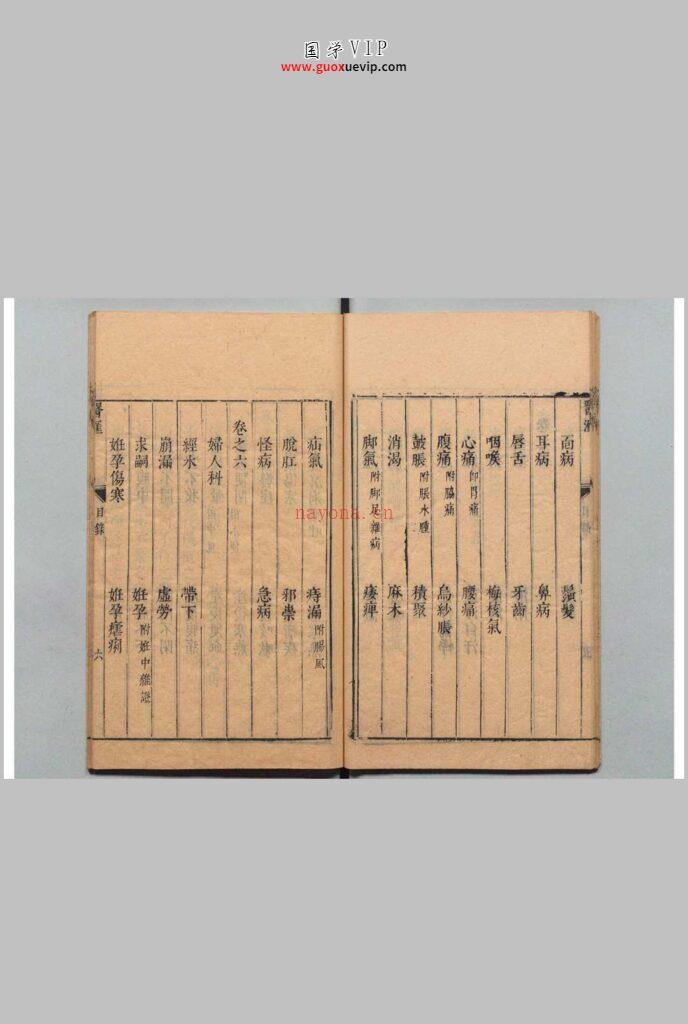 国学VIP
www.guoxuevip.com
面病 鬚髮
耳病 鼻病
唇舌 牙齒
咽喉 梅核氣
心痛 卽胃痛 腰痛
腹痛 附脇痛 烏紗脹
鼓脹 附脹水腫 積聚
消渴 麻木
脚氣 附脚足雜病 痿痺
疝氣 痔漏 附腸風
脫肛 邪祟
怪病 急病
卷之六
婦人科
經水 帶下
崩漏 虛勞
求嗣 姙孕 附姙中雜證
姙孕傷寒 姙孕瘧痢
目錄
六
nayona.cn